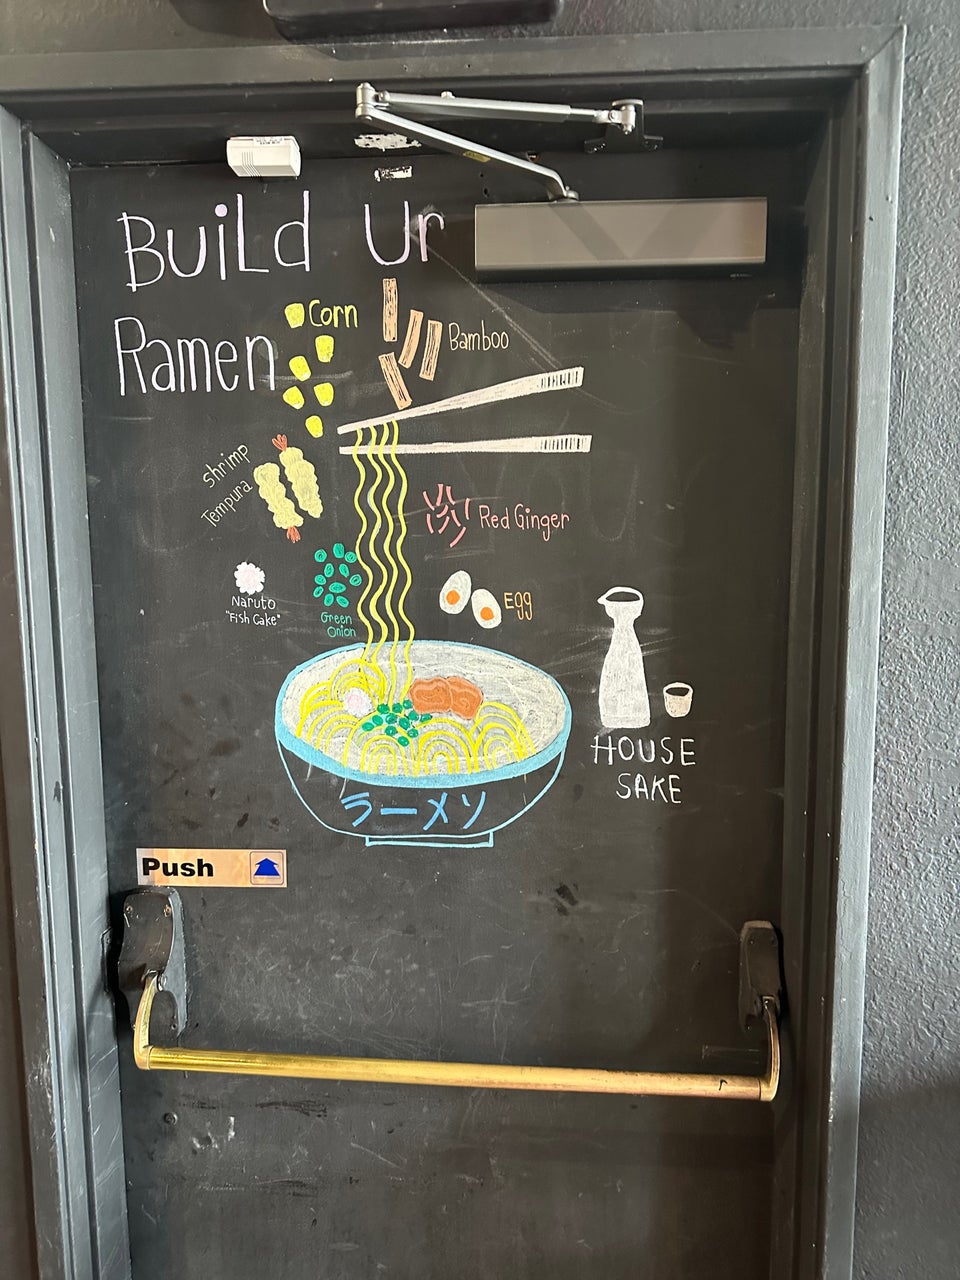 BuiLd Ur
Ramen
Corn
Bamboo
shrimp
Tempura
Red Ginger
Naruto
"Fish Cake"
Green
Onion
Egg
HOUSE
SAKE
ラーメソ
Push